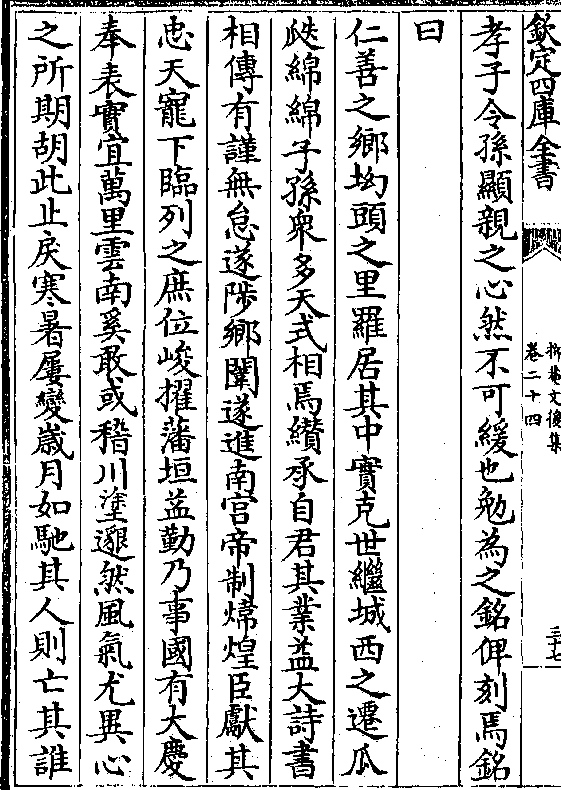 欽定四庫全書
抑菴文後集
卷二十四
三十七
孝子令孫顯親之心然不可緩也勉為之銘俾刻焉銘
曰
仁善之鄉坳頭之里羅居其中實克世繼城西之遷瓜
瓞綿綿子孫衆多天式相焉纘承自君其業益大詩書
相傳有謹無怠遂陟鄉闈遂進南宫帝制煒煌臣獻其
忠天寵下臨列之庶位峻擢藩垣益勤乃事國有大慶
奉表實宜萬里雲南奚敢或稽川塗邈然風氣尤異心
之所期胡此止戾寒暑屢變嵗月如馳其人則亡其誰